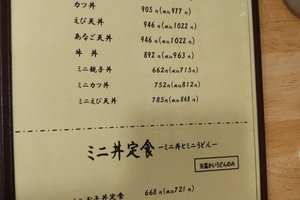 カツ丼 905円(税込977円)
えび天丼 946円(税込1022円)
あなご天丼 946円(税込1022円)
牛丼 892円(税込963円)
ミニ親子丼 662円(税込715円)
ミニカツ丼 752円(税込812円)
ミニえび天丼 785円(税込848円)
ミニ丼定食 ーミニ丼とミニうどんー
※温かいうどんのみ
丼定食 668円(税込721円)